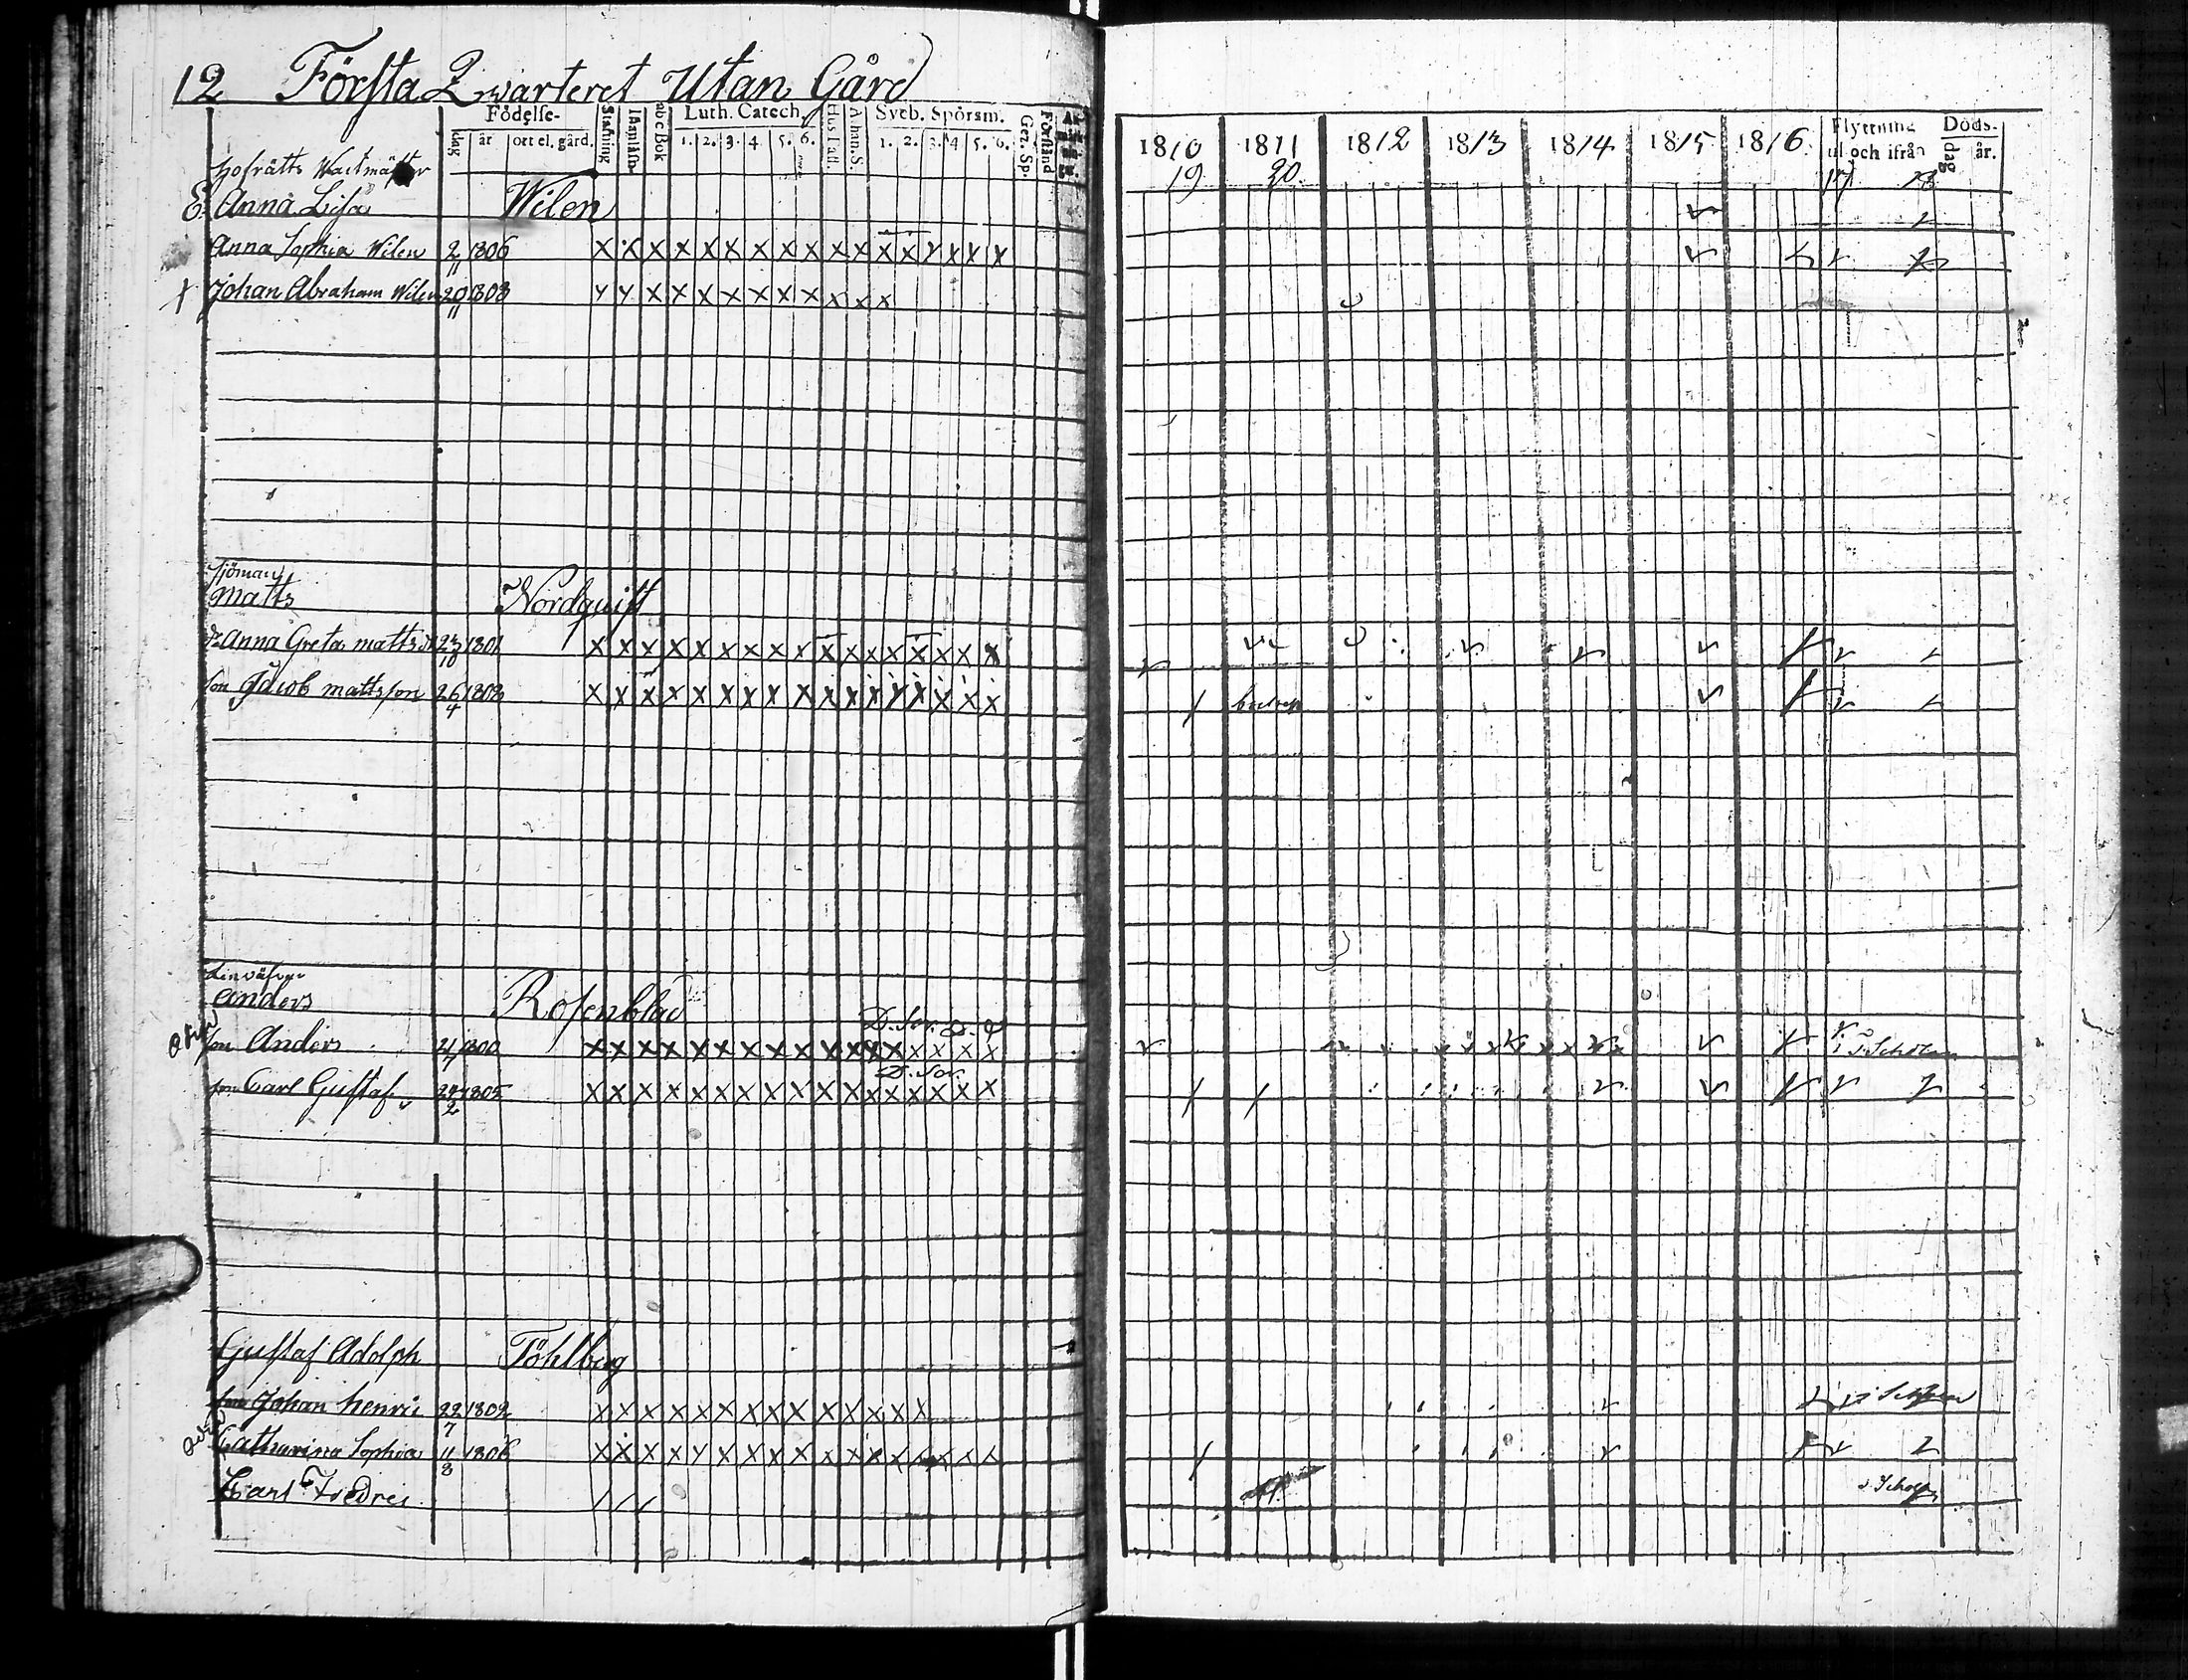 12 Första Qwarteret Utan Gård
Födelse- Stafning Luth. Catech. Hus Tafl. Athan. S. Sveb. Spörsm. Gez. Sp. Förstånd
dag år ort el. gård. abc Bok 1. 2. 3. 4. 5. 6. 1. 2. 3. 4. 5. 6.
1810 1811 1812 1813 1814 1815 1816 Flyttning Döds-
til och ifrån dag år.
19 20 17 18
Hofrätts Wacktmäster
E. Anna Lisa Wilen
Anna Sophia Wilen 2/11 1806 x x x x x x x x x x x x x x x x x
Johan Abraham Wilen 20/11 1808 x x x x x x x x x x x x
Sjöman
Matts Nordquist
Anna Greta Matts dr 23/10 1801 x x x x x x x x x x x x x x x x x
son Jacob Mattsson 26/4 1803 x x x x x x x x x x x x x x x x x
Linväfvare
Anders Rosenblad
son Anders 1800 x x x x x x x x x x x x x x x x x
son Carl Gustaf 24/2 1805 x x x x x x x x x x x x x x x x x
Gustaf AdolphFöhlberg
son Johan Henric 22/7 1802 x x x x x x x x x x x x x x
Catharina Sophia 11/8 1806 x x x x x x x x x x x x x x x x x
Carl Fredric